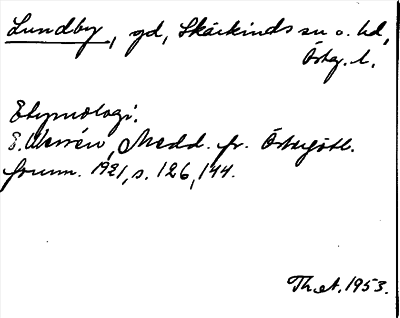 Lundby, gd, Skärkinds sn o. hd,
Östg. l.
Etymologi.
E. Wessén, Medd. fr. Östergötl.
fornm. 1921, s. 126, 144.
Th. 1953.